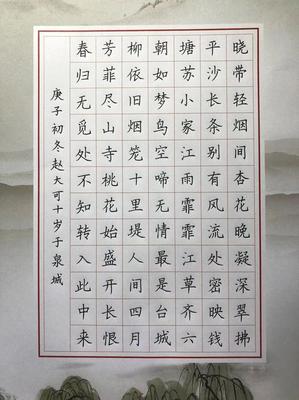 晓带轻烟间杏花晚凝深翠拂
平沙长条别有风流处密映钱
塘苏小家江雨霏霏江草齐六
朝如梦鸟空啼无情最是台城
柳依旧烟笼十里堤人间四月
芳菲尽山寺桃花始盛开长恨
春归无觅处不知转入此中来
庚子初冬赵大可十岁于泉城